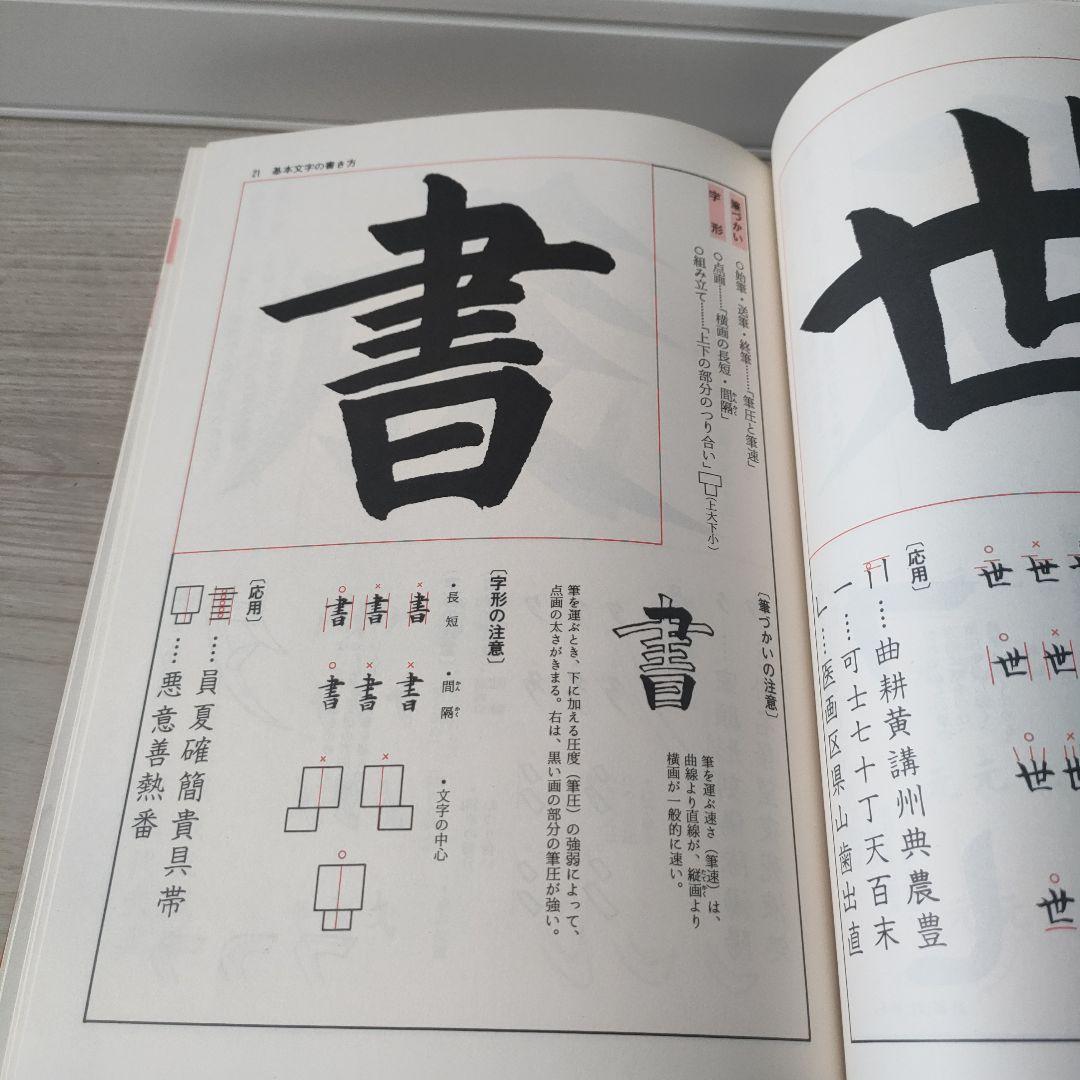 21 基本文字の書き方
筆づかい ○始筆・送筆・終筆……「筆圧と筆速」
字形 ○点画……「横画の長短・間隔」
かんかく
○組み立て……「上下の部分のつり合い」(上大下小)
書
〔筆づかいの注意〕
書
筆を運ぶ速さ(筆速)は、
曲線より直線が、縦画より
横画が一般的に速い。
筆を運ぶとき、下に加える圧度(筆圧)の強弱によって、
点画の太さがきまる。右は、黒い画の部分の筆圧が強い。
〔字形の注意〕
・長短
× 書
× 書
○ 書
・間隔
かん かく
× 書
× 書
○ 書
・文字の中心
×
×
○
〔応用〕
……員夏確簡貴具帯
……悪意善熱番
世
○ ×
世 世
○ ×
世 世
○
世
○
世
〔応用〕
……曲耕黄講州典農豊
一……可士七十丁天百末
……医画区県山歯出直